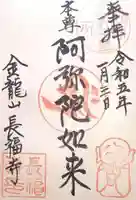 奉拝
令和五年
一月三日
本尊
阿弥陀如来
金龍山
長福寺